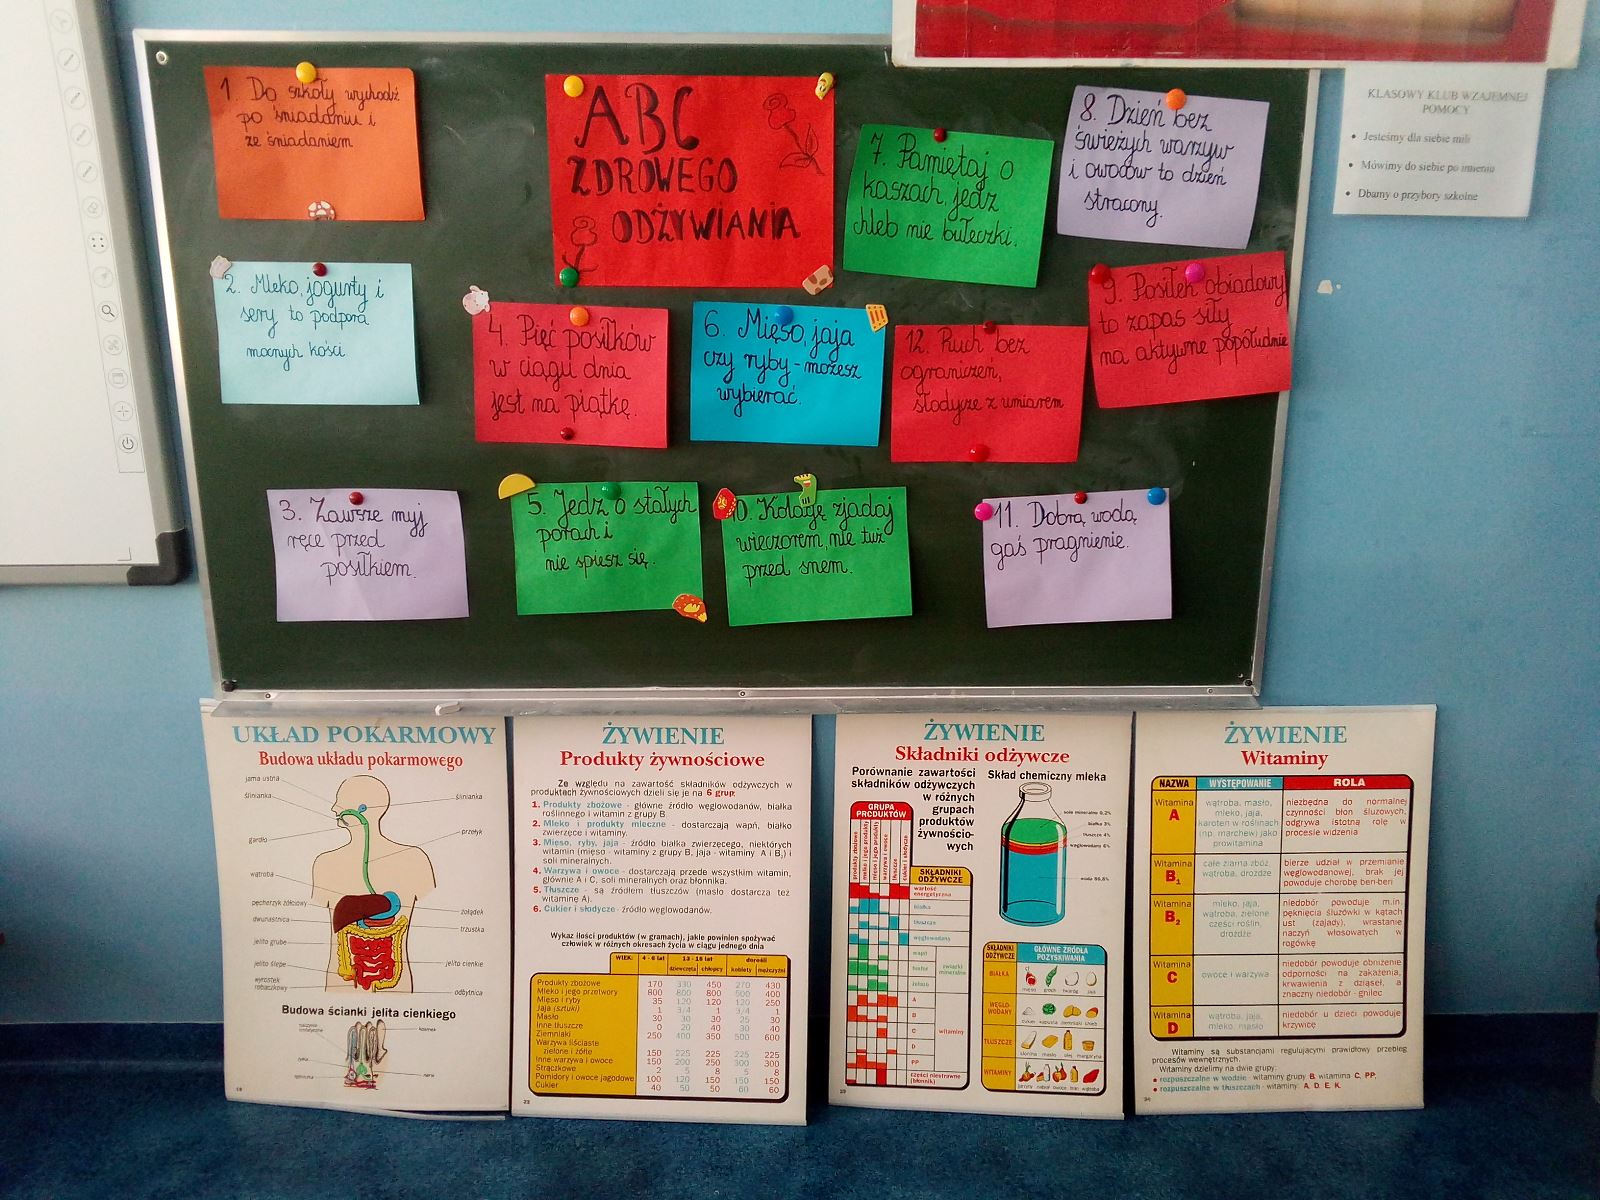 1. Do szkoły wychodź
po śniadaniu i
ze śniadaniem
ABC
ZDROWEGO
ODŻYWIANIA
7. Pamiętaj o
kaszach, jedz
chleb nie bułeczki.
8. Dzień bez
świeżych warzyw
i owoców to dzień
stracony.
KLASOWY KLUB WZAJEMNEJ
POMOCY
• Jesteśmy dla siebie mili
• Mówimy do siebie po imieniu
• Dbamy o przybory szkolne
2. Mleko, jogurty i
sery to podpora
mocnych kości
4. Pięć posiłków
w ciągu dnia
jest na piątkę.
6. Mięso, jaja
czy ryby - możesz
wybierać.
12. Ruch bez
ograniczeń,
słodycze z umiarem
9. Posiłek obiadowy
to zapas siły
na aktywne popołudnie
3. Zawsze myj
ręce przed
posiłkiem.
5. Jedz o stałych
porach i
nie spiesz się.
10. Kolację zjadaj
wieczorem, nie tuż
przed snem.
11. Dobrą wodą
gaś pragnienie.
UKŁAD POKARMOWY
Budowa układu pokarmowego
jama ustna
ślinianka
ślinianka
gardło
przełyk
wątroba
pęcherzyk żółciowy
żołądek
dwunastnica
trzustka
jelito grube
jelito ślepe
jelito cienkie
wyrostek
robaczkowy
odbytnica
Budowa ścianki jelita cienkiego
kosmek
ŻYWIENIE
Produkty żywnościowe
Ze względu na zawartość składników odżywczych w
produktach żywnościowych dzieli się je na 6 grup:
1. Produkty zbożowe - główne źródło węglowodanów, białka
roślinnego i witamin z grupy B.
2. Mleko i produkty mleczne - dostarczają wapń, białko
zwierzęce i witaminy.
3. Mięso, ryby, jaja - źródło białka zwierzęcego, niektórych
witamin (mięso - witaminy z grupy B, jaja - witaminy A i B,) i
soli mineralnych.
4. Warzywa i owoce - dostarczają przede wszystkim witamin,
głównie A i C, soli mineralnych oraz błonnika.
5. Tłuszcze - są źródłem tłuszczów (masło dostarcza też
witaminę A).
6. Cukier i słodycze - źródło węglowodanów.
Wykaz ilości produktów (w gramach), jakie powinien spożywać
człowiek w różnych okresach życia w ciągu jednego dnia
WIEK: 4 - 6 lat 13 - 15 lat dorośli
dziewczęta chłopcy kobiety mężczyźni
Produkty zbożowe 170 330 450 270 430
Mleko i jego przetwory 800 800 800 500 400
Mięso i ryby 35 120 120 120 250
Jaja (sztuki) 1 3/4 1 3/4 1
Masło 30 30 30 25 30
Inne tłuszcze 0 20 40 30 40
Ziemniaki 250 400 350 500 600
Warzywa liściaste
zielone i żółte 150 225 225 225 225
Inne warzywa i owoce 150 200 250 300 300
Strączkowe 2 5 8 5 8
Pomidory i owoce jagodowe 100 120 150 150 150
Cukier 40 50 50 60 60
ŻYWIENIE
Składniki odżywcze
Porównanie zawartości
składników odżywczych
w różnych
grupach
produktów
żywnościo-
wych
Skład chemiczny mleka
sole mineralne 0,2%
białka 3%
tłuszcze 4%
woda 86,8%
GRUPA
PRODUKTÓW
SKŁADNIKI
ODŻYWCZE
wartość
energetyczna
białka
tłuszcze
węglowodany
wapń
fosfor
żelazo
związki
mineralne
A
B
C
D
PP
witaminy
części niestrawne
(błonnik)
SKŁADNIKI
ODŻYWCZE
GŁÓWNE ŹRÓDŁA
POZYSKIWANIA
BIAŁKA
mięso groch twaróg jaja
WĘGLO-
WODANY
cukier kapusta ziemniaki chleb
TŁUSZCZE
słonina masło olej margaryna
WITAMINY
ŻYWIENIE
Witaminy
NAZWA WYSTĘPOWANIE ROLA
Witamina
A
wątroba, masło,
mleko, jaja,
karoten w roślinach
(np. marchew) jako
prowitamina
niezbędna do normalnej
czynności błon śluzowych,
odgrywa istotną rolę w
procesie widzenia
Witamina
B1
całe ziarna zbóż,
wątroba, drożdże
bierze udział w przemianie
węglowodanowej, brak jej
powoduje chorobę beri-beri
Witamina
B2
mleko, jaja,
wątroba, zielone
części roślin,
drożdże
niedobór powoduje m.in.
pęknięcia śluzówki w kątach
ust (zajady), wrastanie
naczyń włosowatych w
rogówkę
Witamina
C
owoce i warzywa
niedobór powoduje obniżenie
odporności na zakażenia,
krwawienia z dziąseł, a
znaczny niedobór - gnilec
Witamina
D
wątroba, jaja,
mleko, masło
niedobór u dzieci powoduje
krzywicę
Witaminy są substancjami regulującymi prawidłowy przebieg
procesów wewnętrznych.
Witaminy dzielimy na dwie grupy:
• rozpuszczalne w wodzie - witaminy grupy B, witamina C, PP
• rozpuszczalne w tłuszczach - witaminy: A, D, E, K.